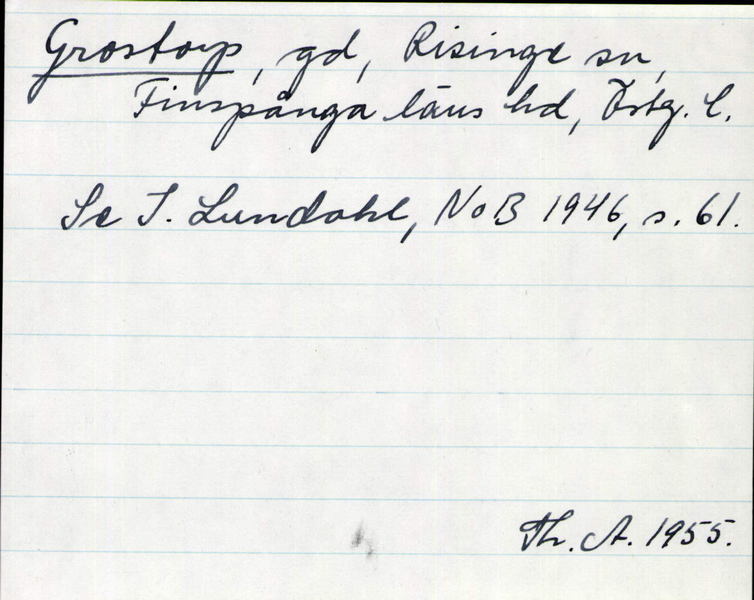 Grostorp, gd, Risinge sn,
Finspånga läns hd, Östg. l.
Se I. Lundahl, NoB 1946, s. 61.
Th. A. 1955.